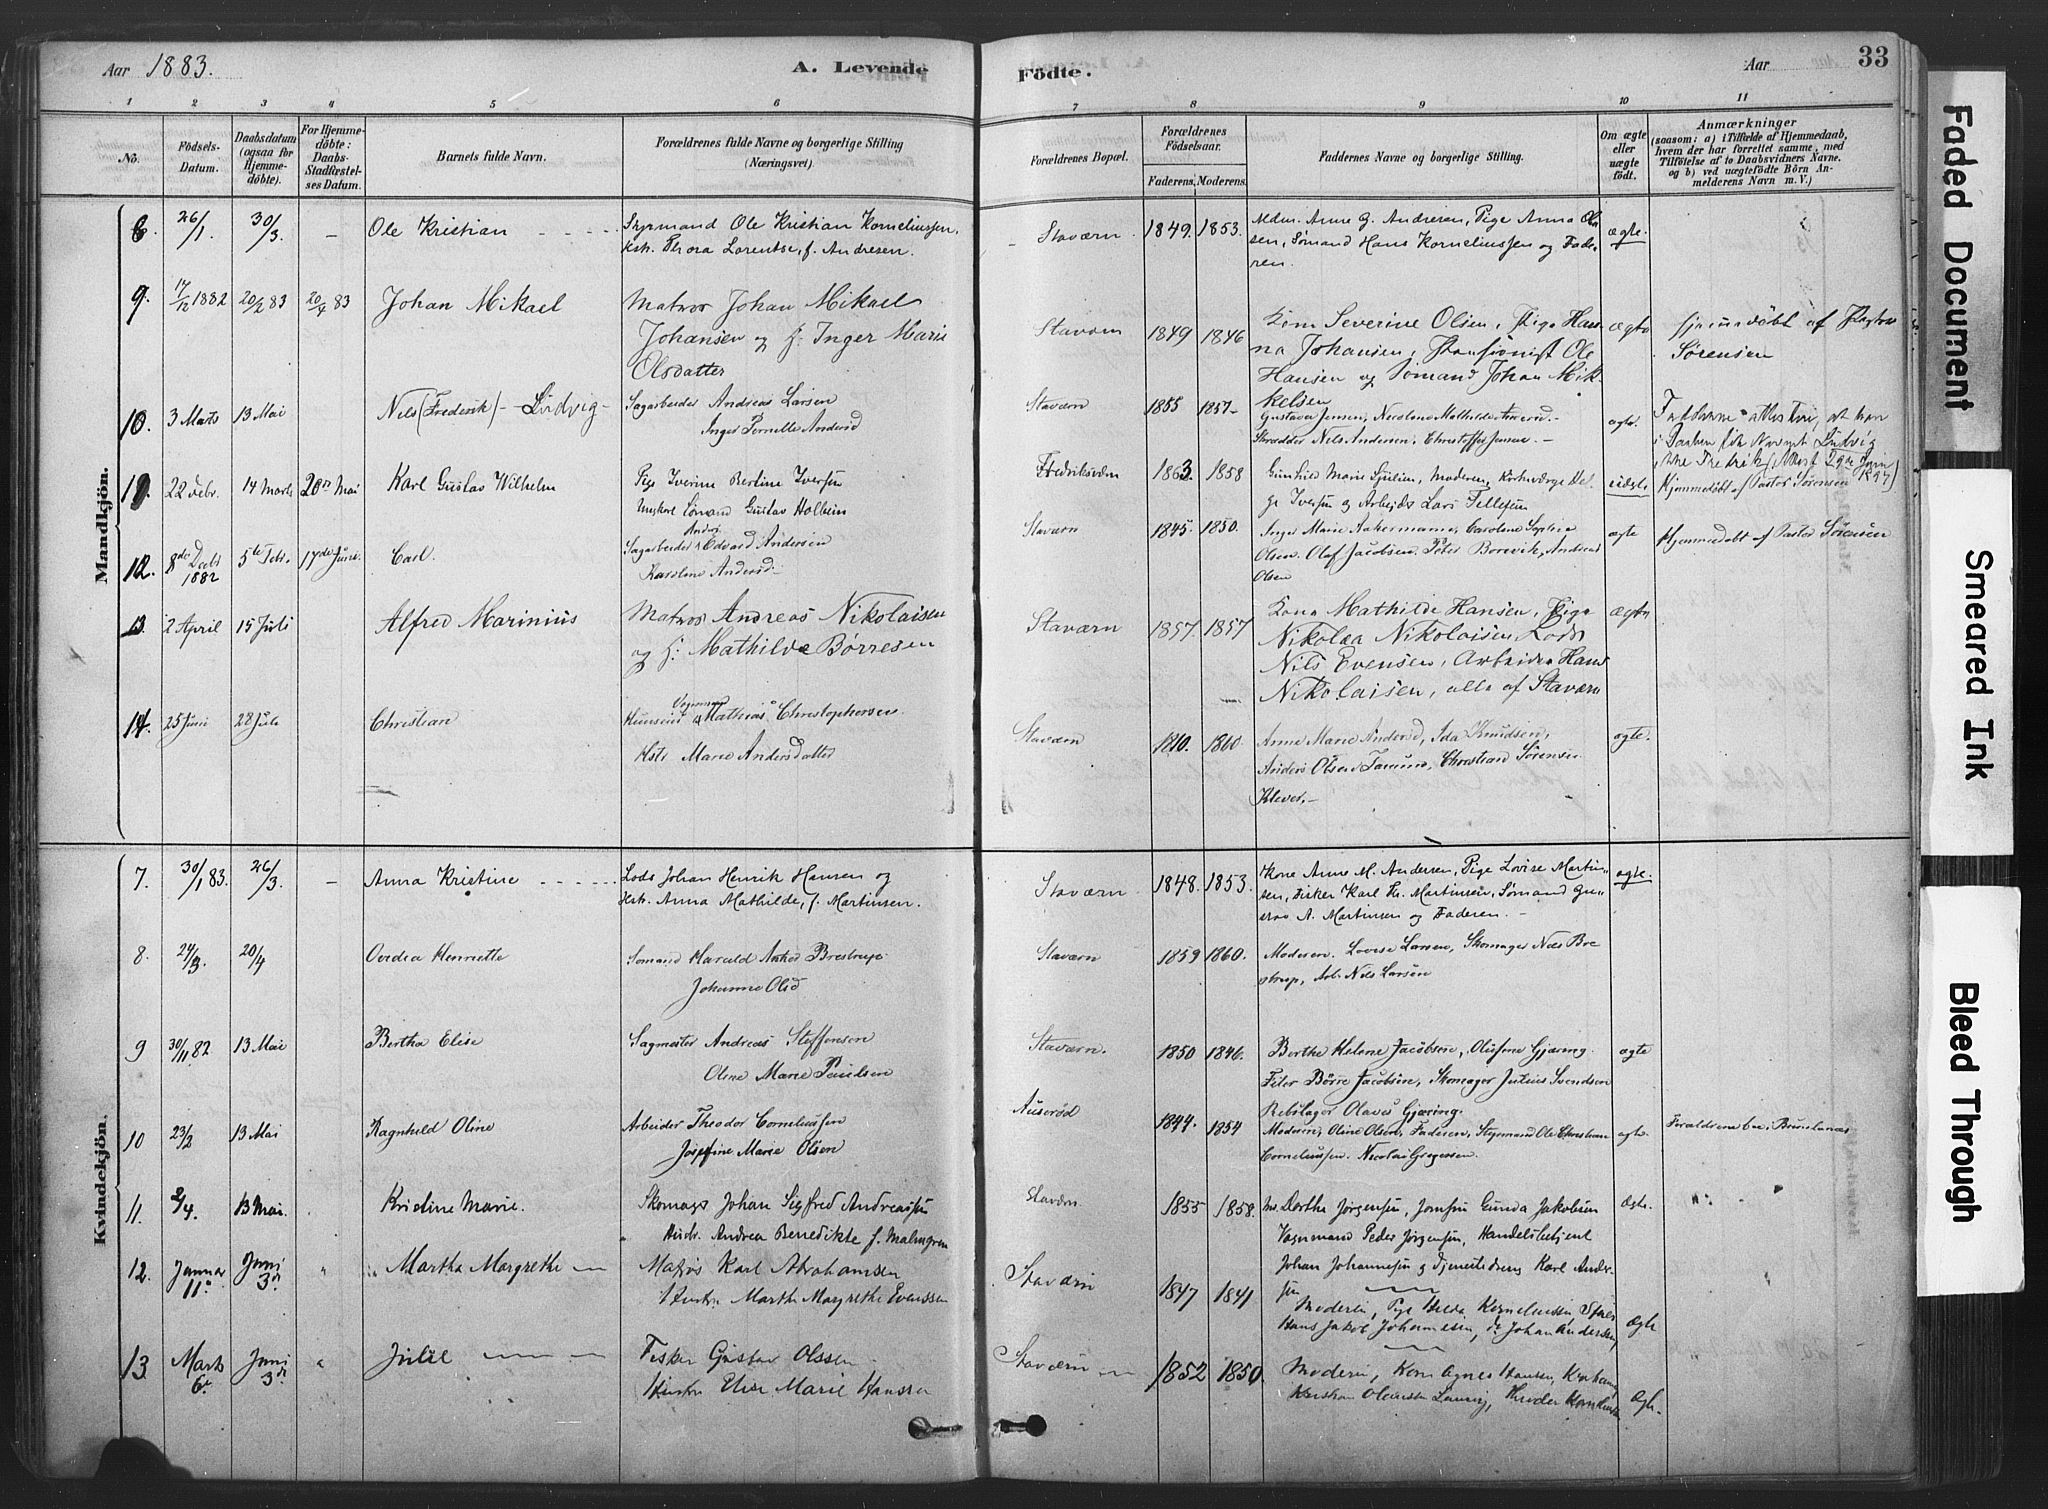 Aar 1883.
A. Levende
Födte.
Aar
33
1 2 3 4 5 6 7 8 9 10 11
No.
Födsels-
Datum.
Daabsdatum
(ogsaa for
Hjemme-
döbte).
For Hjemme-
döbte:
Daabs-
Stadfæstel-
ses Datum.
Barnets fulde Navn.
Forældrenes fulde Navne og borgerlige Stilling
(Næringsvei).
Forældrenes Bopæl.
Forældrenes
Födselsaar.
Faderens. Moderens.
Faddernes Navne og borgerlige Stilling.
Om ægte
eller
uægte
födt.
Anmærkninger
(saasom: a) i Tilfælde af Hjemmedaab,
hvem der har forrettet samme, med
Tilföielse af to Daabsvidners Navne.
og b) ved uægtefödte Börn An-
melderens Navn m. V.)
Mandkjön.
26/1 30/3 – Ole Kristian
Styrmand Ole Kristian Korneliussen.
Hstr. Thora Lorentse, f. Andresen.
Staværn 1849. 1853.
Mdm. Anne G. Andresen, Pige Anna Ol-
sen, Sömand Hans Korneliussen og Fade-
ren.
ægte.
9. 17/12 1882 20/2 83 20/4 83 Johan Mikael
Matros Johan Mikael
Johansen og H. Inger Marie
Olsdatter
Staværn 1849 1846
Kone Severine Olsen, Pige Han-
na Johansen, Pensionist Ole
Hansen og Sömand Johan Mik-
kelsen
ægte
Hjemmedöbt af Pastor
Sörensen
10. 3 Marts 13 Mai Nils (Frederik) – Ludvig –
Sagarbeider Andreas Larsen
Inger Pernille Andersd
Staværn 1855 1857
Gustava Jensen, Nicoline Mathilde
Skrædder Nils Andersen, Christoffer Jensen. –
ægte.
Fadderne attesterer, at han
i Daaben fik Navnet Ludvig
ikke Fredrik
22 Febr. 14 Marts 20n Mai Karl Gustav Wilhelm
Pige Iverine Bertine Iversen
Ungkarl Sömand Gustav Holbein
Fredriksværn 1863 1858
Gunhild Marie Moderen, Kirkeværge Hel-
ge Iversen og Arbejds Lars Tellefsen
uægte
Hjemmedöbt af Pastor Sörensen
12. 8de Decbr 1882 5te Febr. 17de Juni. Carl.
Sagarbeider Edvard Andersen
Karoline Andersd –
Staværn 1845. 1850.
Inger Marie Aakermann, Caroline Sophie
Olsen. Olaf Jacobsen, Peter Borevik, Andreas
Olsen
ægte
Hjemmedöbt af Pastor Sörensen
13. 2 April 15 Juli Alfred Marinius
Matros Andreas Nikolaisen
og H. Mathilde Börresen
Staværn 1857. 1857
Kone Mathilde Hansen, Pige
Nikolea Nikolaisen, Lods
Nils Evensen, Arbeider Hans
Nikolaisen, alle af Staværn
ægte
14. 25 Juni 28 Juli Christian
Vognmand
Mathias Christophersen
Hstr Marie Andersdatter
Staværn 1860. 1860.
Anne Marie Andersd, Ida Knudsen,
Anders Olsen, Christian Sörensen
Klever. –
ægte.
Kvindekjön.
7. 30/1 83. 26/3. – Anna Kristine
Lods Johan Henrik Hansen og
Hstr. Anna Mathilde, f. Martinsen.
Staværn 1848. 1853.
Kone Anne M. Andersen, Pige Lovise Martin-
sen, Fisker Karl Kr. Martinsen, Sömand Gu-
stav A. Martinsen og Faderen. –
ægte.
8. 24/3. 20/4 Ovedia Henriette
Sömand Harald Anker Brestrup
Johanne Olsd
Staværn 1859 1860.
Moderen. Lovise Larsen, Skomager Nils Bre-
strup, Arb. Nils Larsen
9 30/11 82 13 Mai Bertha Elise
Sagmester Andreas Steffensen
Oline Marie Paulsen
Staværn. 1850 1846.
Berthe Helene Jacobsen, Olufine Gjæring.
Peter Börre Jacobsen, Skomager Julius Svendsen
Rebslager Olaves Gjæring.
ægte
10 23/2 13 Mai Ragnhild Oline
Arbeider Theodor Corneliussen
Josefine Marie Olsen
Auseröd 1844. 1854
Moderen, Oline Olsen, Faderen, Styrmand Ole Christian
Corneliussen. Nicolai Gregersen.
ægte.
Forældrene boe i Brunlanæs
11. 2/4. 13 Mai. Kristine Marie.
Skomag. Johan Sigfred Andreassen
Hustr. Andrea Benedikte f. Malmgren
Staværn. 1855 1858.
Md. Dorthe Jörgensen, Jomfru Gunda Jakobsen
Vognmand Peder Jörgensen, Handelsbetjent
Johan Johannesen og Tjenestedreng Karl Ander-
sen
Ægte.
12. Januar 11te Juni 3di " Martha Margrethe
Matros Karl Abrahamsen
Hustru Marthe Margrethe Evenssen
Staværn 1847 1841
Moderen, Pige Hilda Korneliussen
Hans Jakob Johannesen, Johan Andersen
Ægte
13. Marts 6te Juni 3di " Julie
Fisker Gustav Olssen
Hustru Elise Marie Hanssen
Staværn 1852 1850.
Moderen, Kone Agnes Hansen,
Ægte.
Faded Document
Smeared Ink
Bleed Through